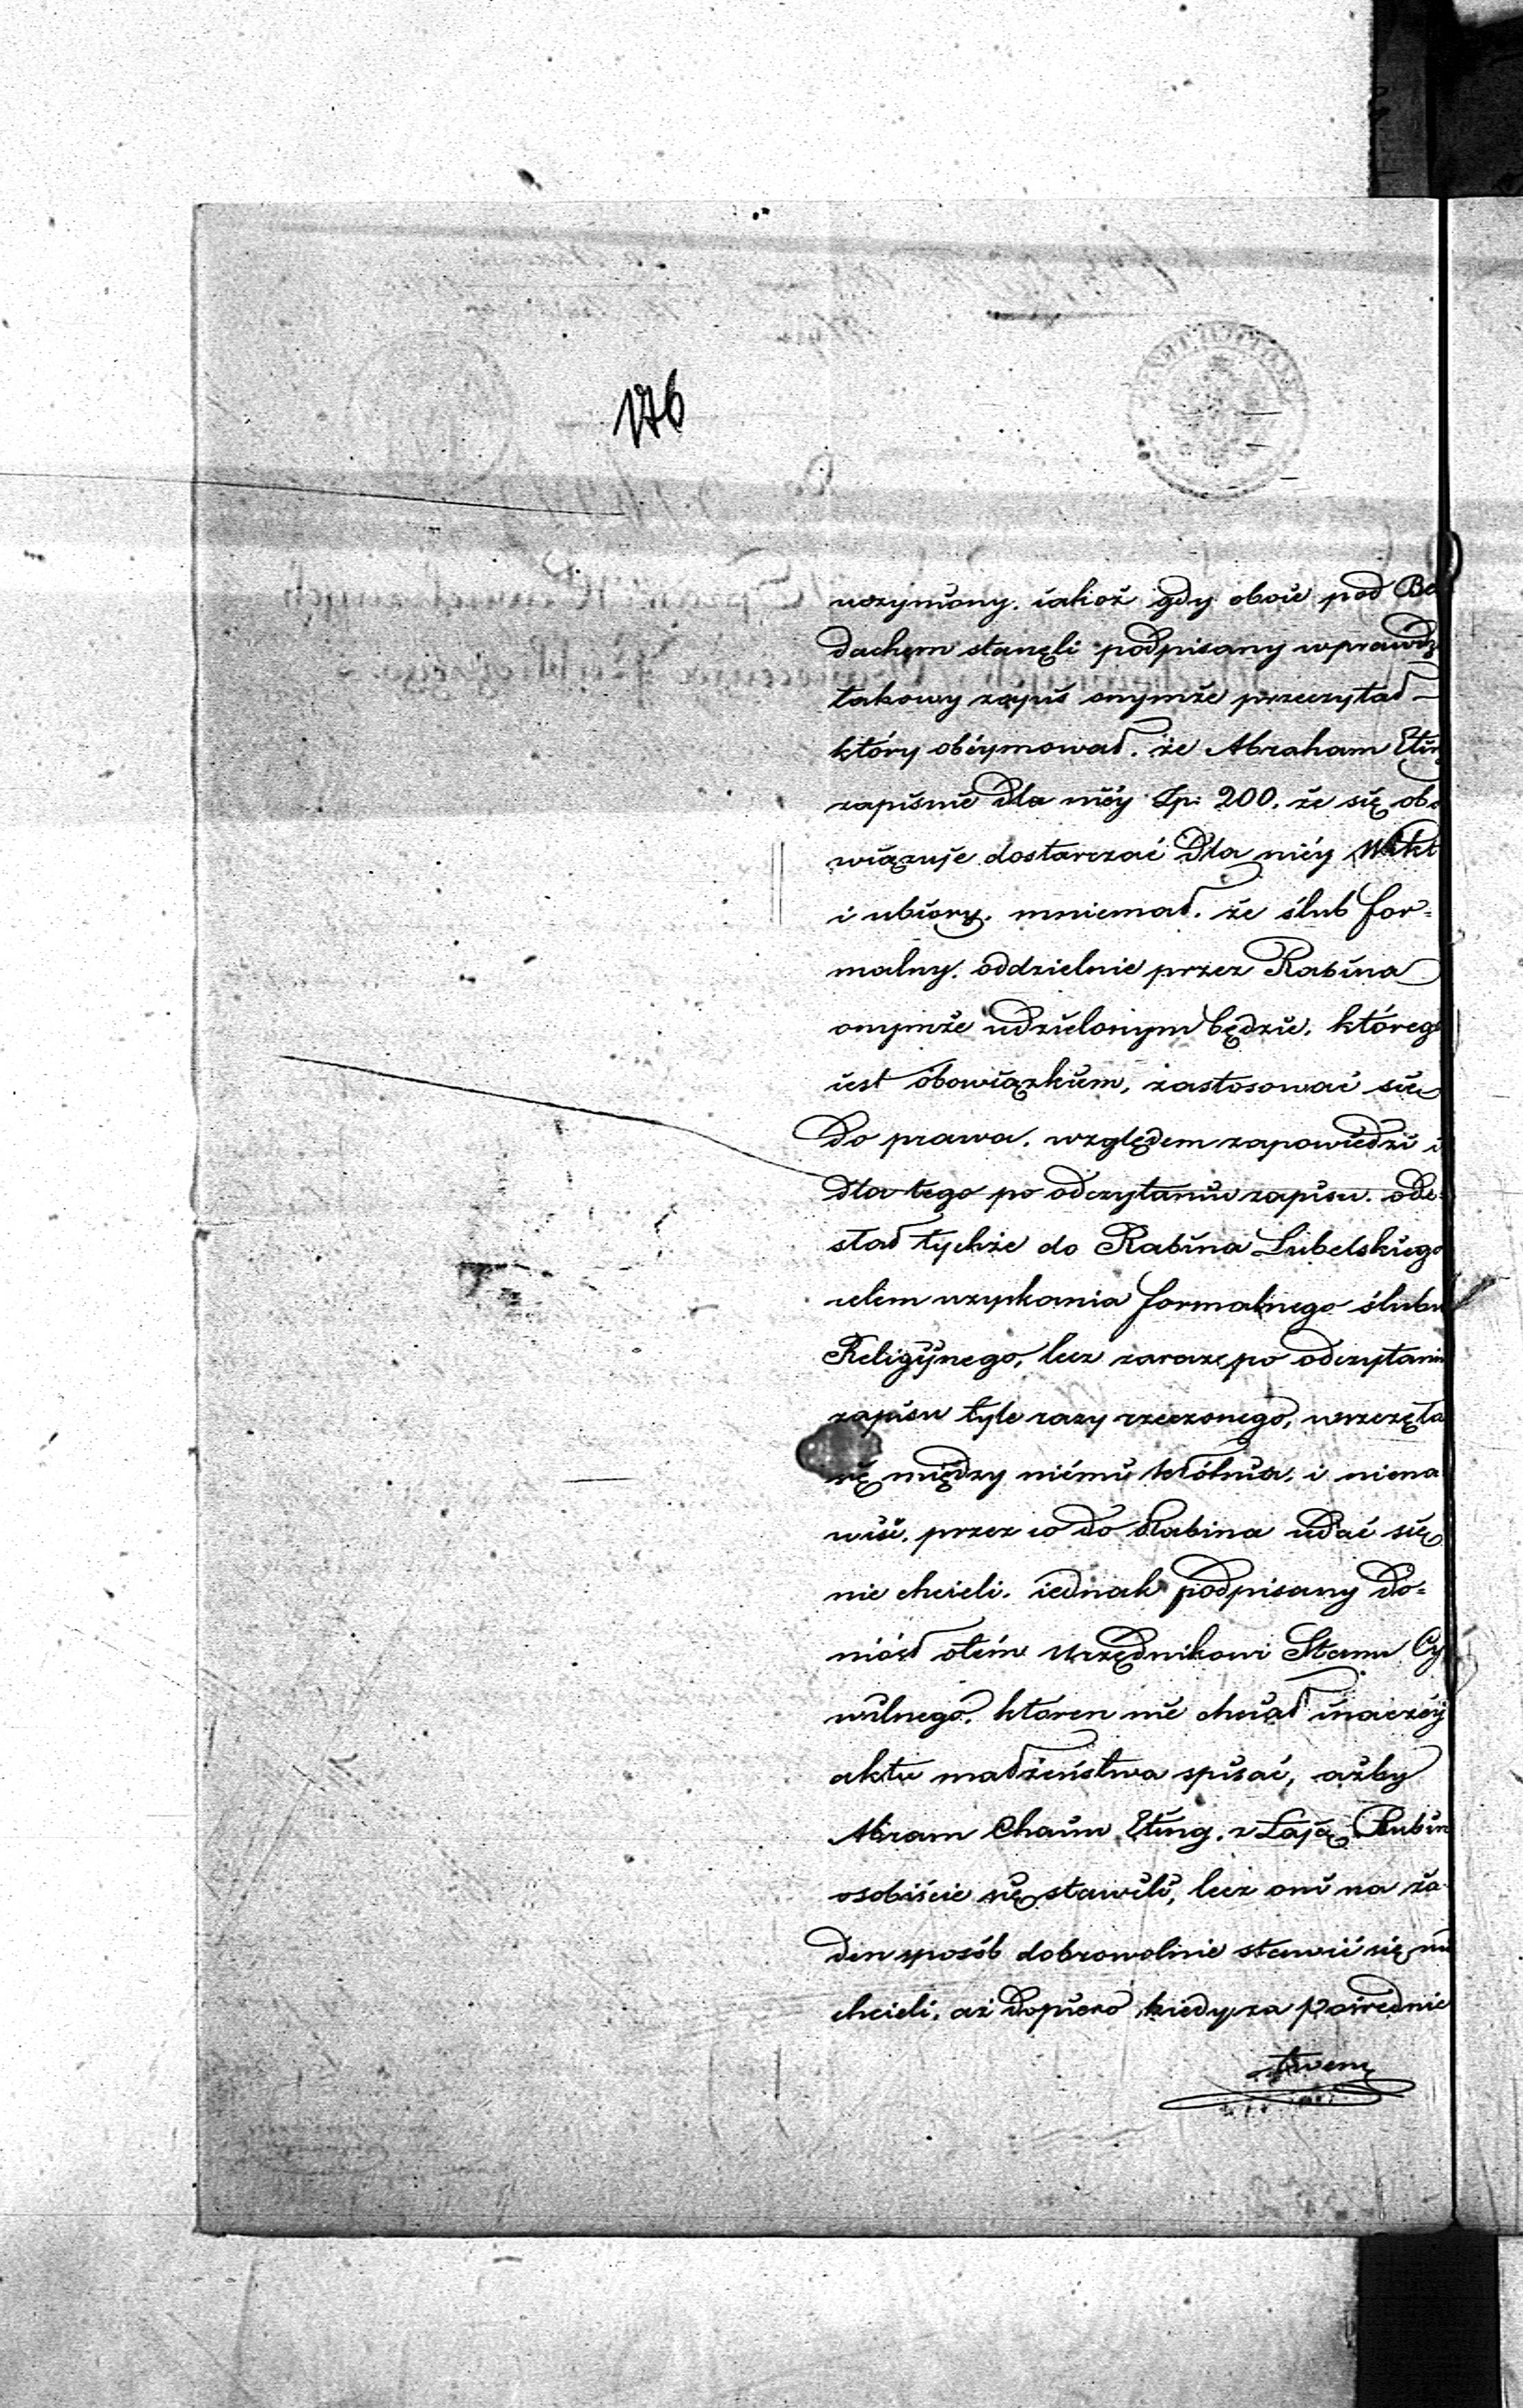 176
uczyniony. iakoż gdy oboie pod Bal
dachem stanęli podpisany wprawdz
takowy zapis onymże przeczytał
który obéymował. że Abraham Eting
zapisuie dla niéy Zp: 200. że się obo
wiązuje dostarczać dla niéy Wikt
i ubiory. mniemał. że ślub for=
malny. oddzielnie przez Rabina
onymże udzielonym będzie. którego
iest obowiązkiem, zastosować się
do prawa. względem zapowiedzi i
dla tego po odczytaniu zapisu. ode=
słał tychże do Rabina Lubelskiego
celem uzyskania formalnego ślubu
Religijnego, lecz zaraz po odczytaniu
zapisu tyle razy rzeczonego, wszczęła
się między niémi kłótnia. i niena
wiść. przez co do Rabina udać się
nie chcieli. iednak podpisany do=
niósł otém Urzędnikowi Stanu Cy
wilnego. ktoren nie chciał inaczéy
aktu małżeństwa spisać, ażby
Abram Chaim Eting. z Łają Rubin
osobiście się stawili, lecz oni na ża
den sposób dobrowolnie stawić się nie
chcieli. aż dopiero kiedy za pośrednic
twem